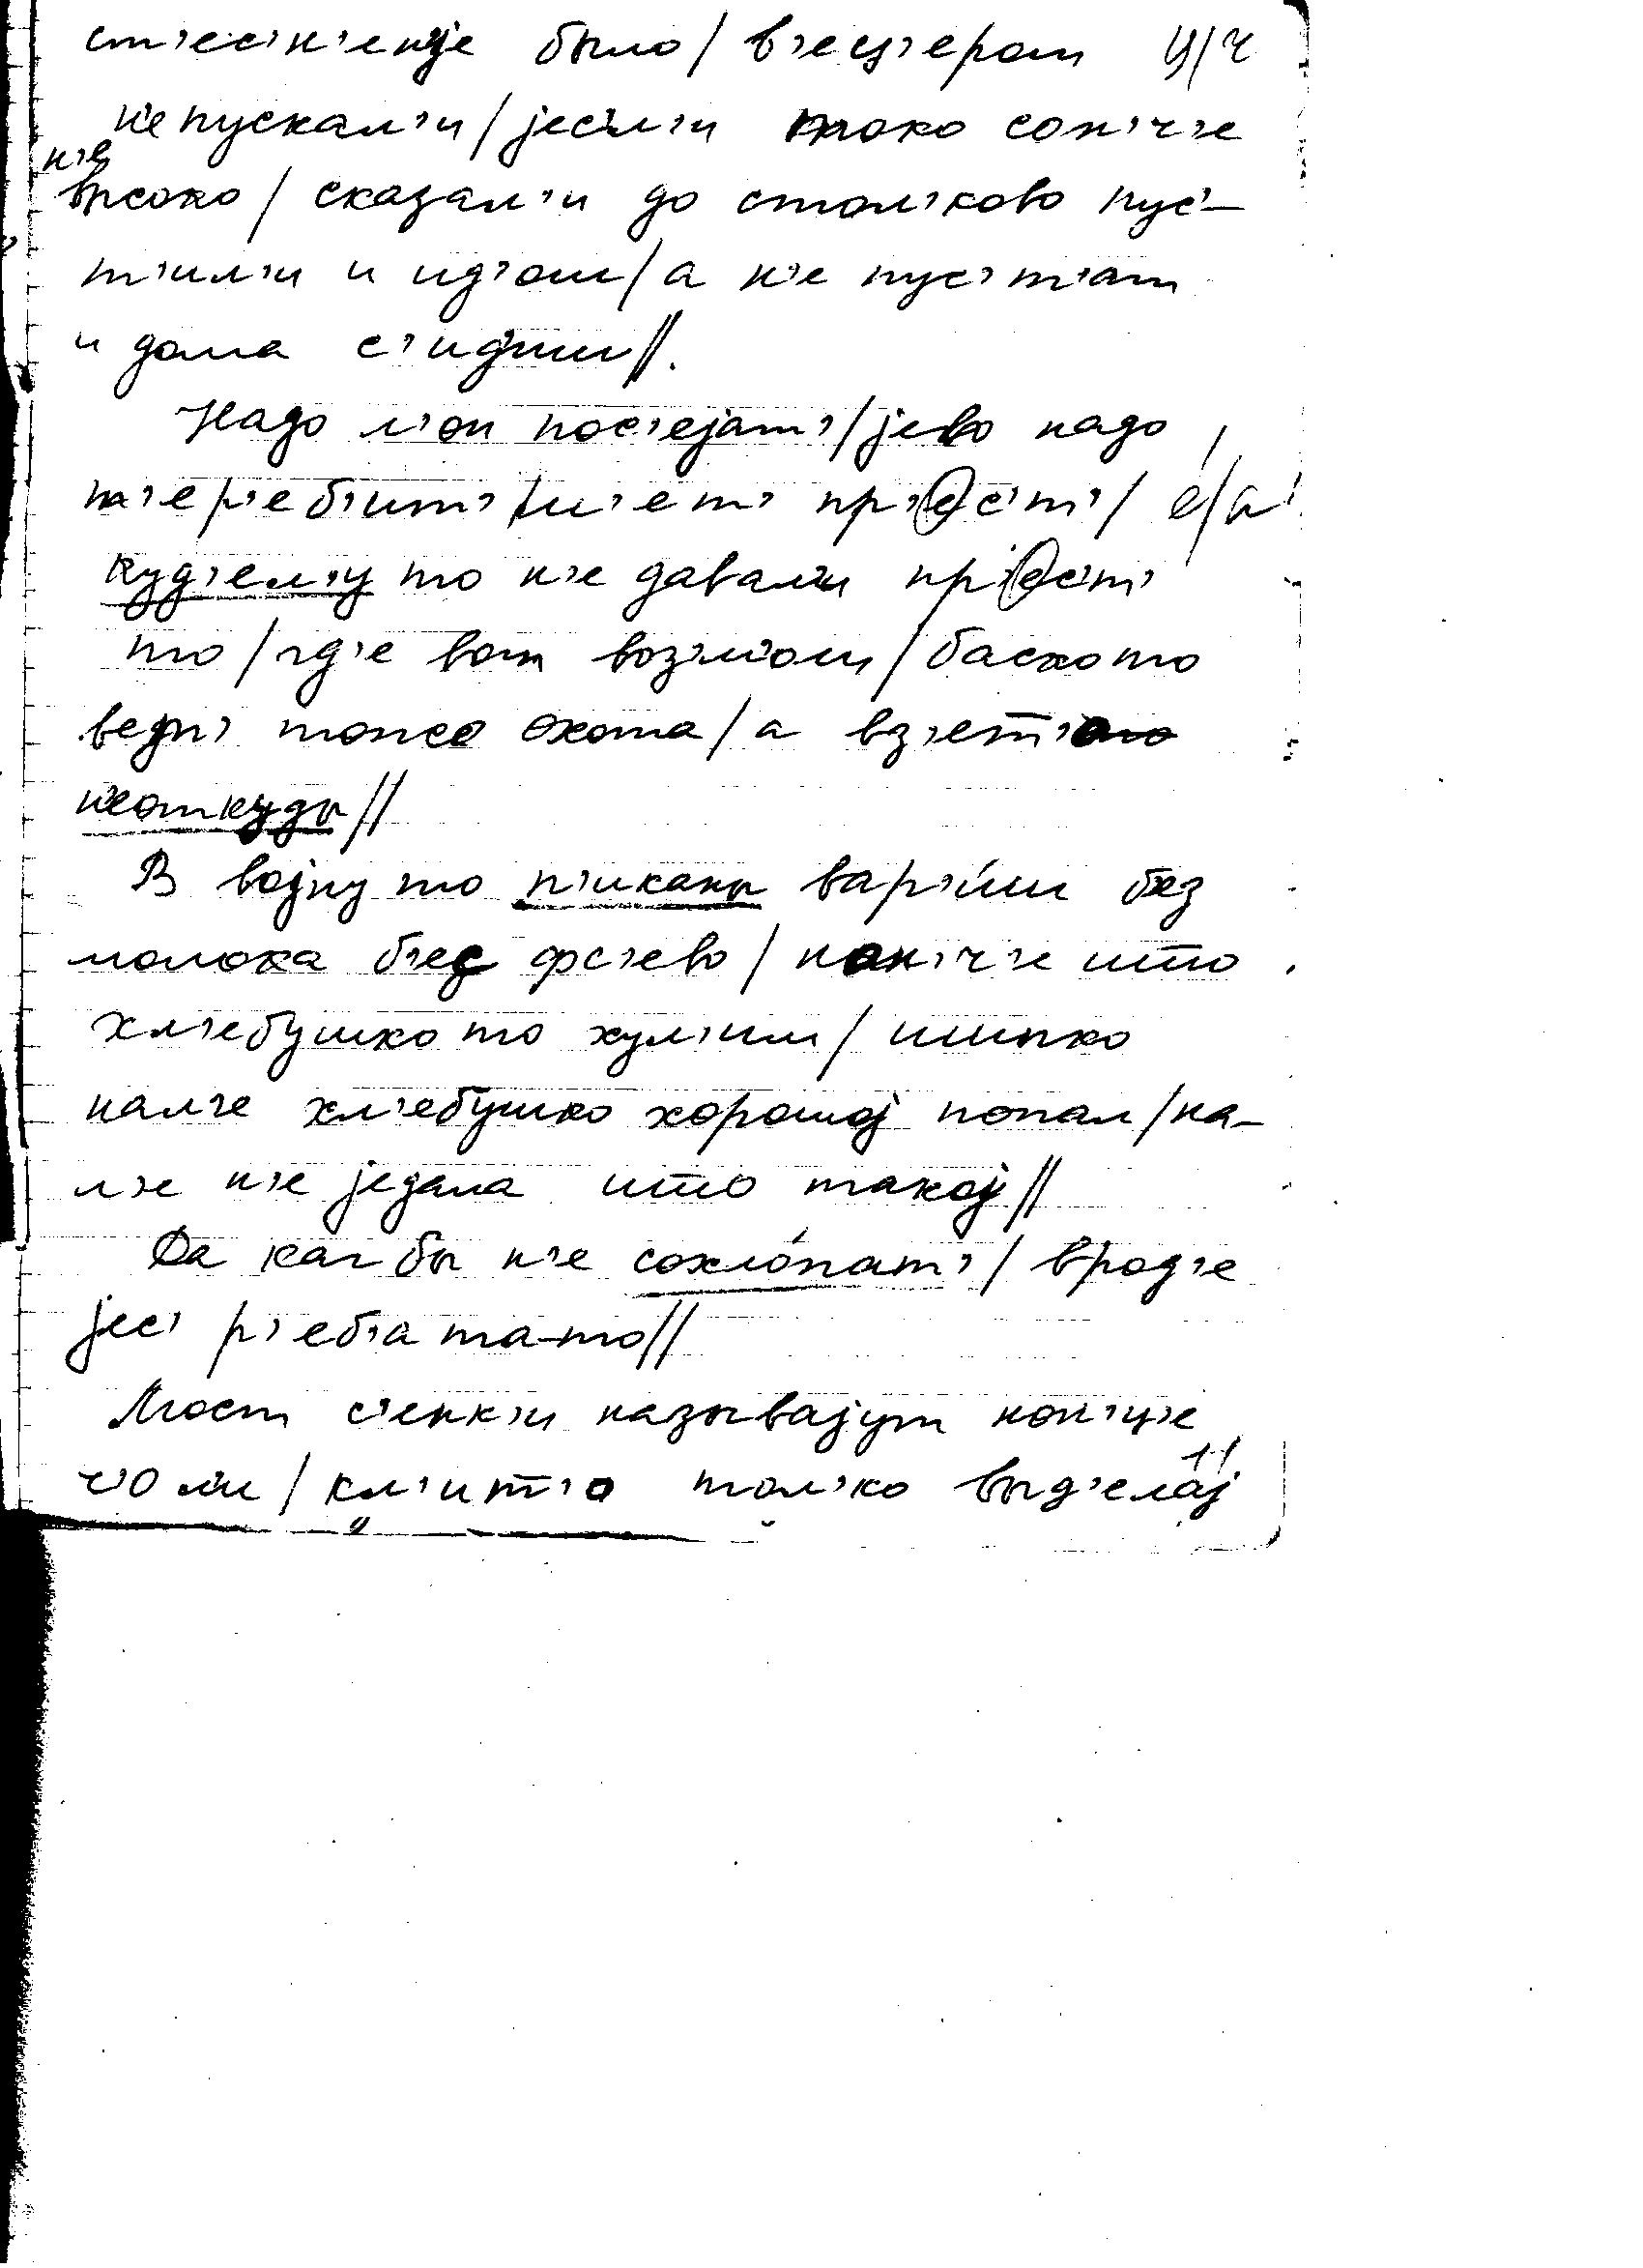 ст'ес'н'ен'је было/ в'ец'ером ц/ч
н'е пускал'и/ јес'л'и токо сон'ч'е
н'е
высоко/ сказал'и до стол'ково пус'-
т'ил'и и ид'ом/ а н'е пус'т'ат
и дома с'ид'им//.
Надо л'он пос'ејат'/ јево надо
т'ер'еб'ит'/ м'ет' пр'ес'т'/ е/а
куд'ел'у то н'е давал'и пр'ес'т'
то/ гд'е вот воз'м'ом/ баско то
ведит' тожо охота/ а вз'ет'
н'еоткуды//
В војну то п'иканы вар'и́м без
молока б'ес фс'ево/ нон'ч'е што
хл'ебушко то хул'им/ шыпко
нал'е хл'ебушко хорошој попал/ на-
л'е н'е једала што такој//
Да каг бы н'е сохло́пат'/ врод'е
јес' р'еб'ата-то//
Мост с'енк'и называјут нон'ц'е
ч'о л'и/ кл'ит'о тол'ко выд'елај